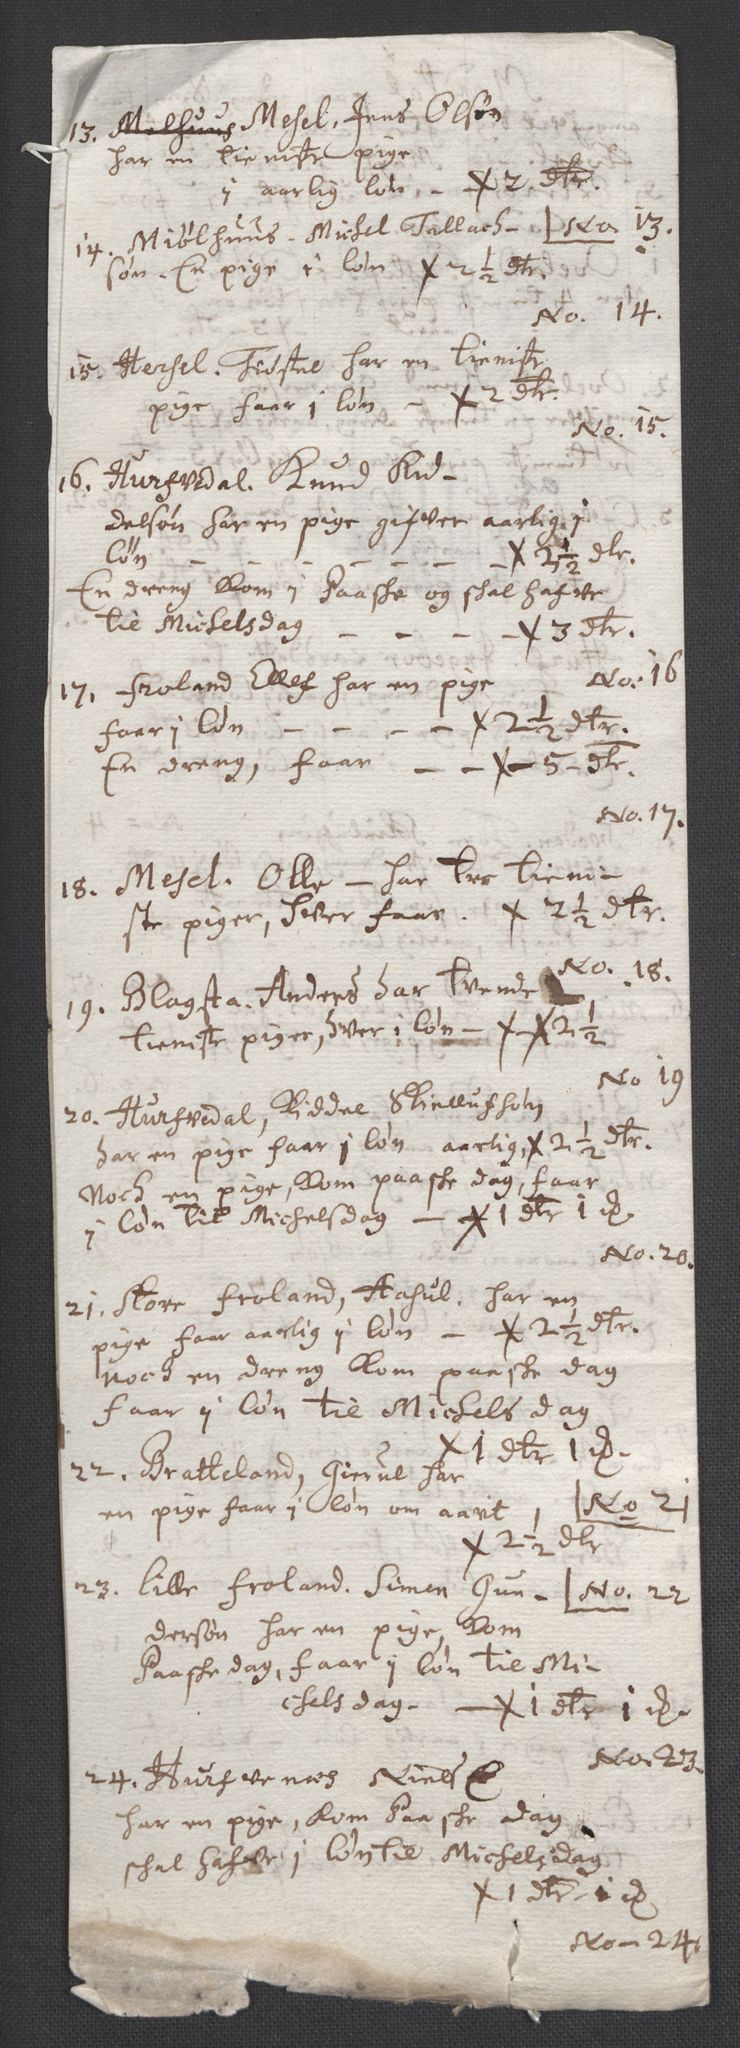 13. Melhuus Mesel. Jens Olsøn
har en tieniste pige
i aarlig løn - X 2 dlr.
14. Miølhuus - Michel Tallach-
søn. En pige i løn X 2 1/2 dlr.
No. 13.
No. 14.
15. Hersel. har en tieniste
pige faar i løn - X 2 dlr.
No. 15.
16. Hurfvedal. Knud Kid-
delsøn har en pige gifver aarlig i
løn - - - - - - - X 2 1/2 dlr.
En dreng kom i Paaske og skal hafve
til Michelsdag - - - - X 3 dlr.
No. 16
17. Froland Ellef har en pige
faar i løn - - - - X 2 1/2 dlr.
En dreng, faar - - X - 5 - dlr.
No. 17.
18. Mesel. Olle - har tre tieni-
ste piger, hver faar. X 2 1/2 dlr.
No. 18.
19. Blagsta. Anders har tvende
tieniste piger, hver i løn - X - X 2 1/2
No 19
20. Hurfvedal, Kiddel
har en pige faar i løn aarlig, X 2 1/2 dlr.
Noch en pige, kom paaske dag, faar
i løn til Michelsdag - X 1 dlr 1
No. 20.
21. Store Froland, Aasul. har en
pige faar aarlig i løn - X 2 1/2 dlr.
Noch en dreng kom paaske dag
faar i løn til Michels dag
X 1 dlr 1
No 21
22. Bratteland, Gierul har
en pige faar i løn om aarit
X 2 1/2 dlr
No. 22
23. Lille Froland. Simen Gun-
dersøn har en pige, kom
Paaske dag, faar i løn til Mi-
chels dag - - X 1 dlr 1
No. 23.
24. Hurfvenes Niels
har en pige, kom Paaske dag
skal hafve i løn til Michelsdag
X 1 dlr - 1
No - 24.